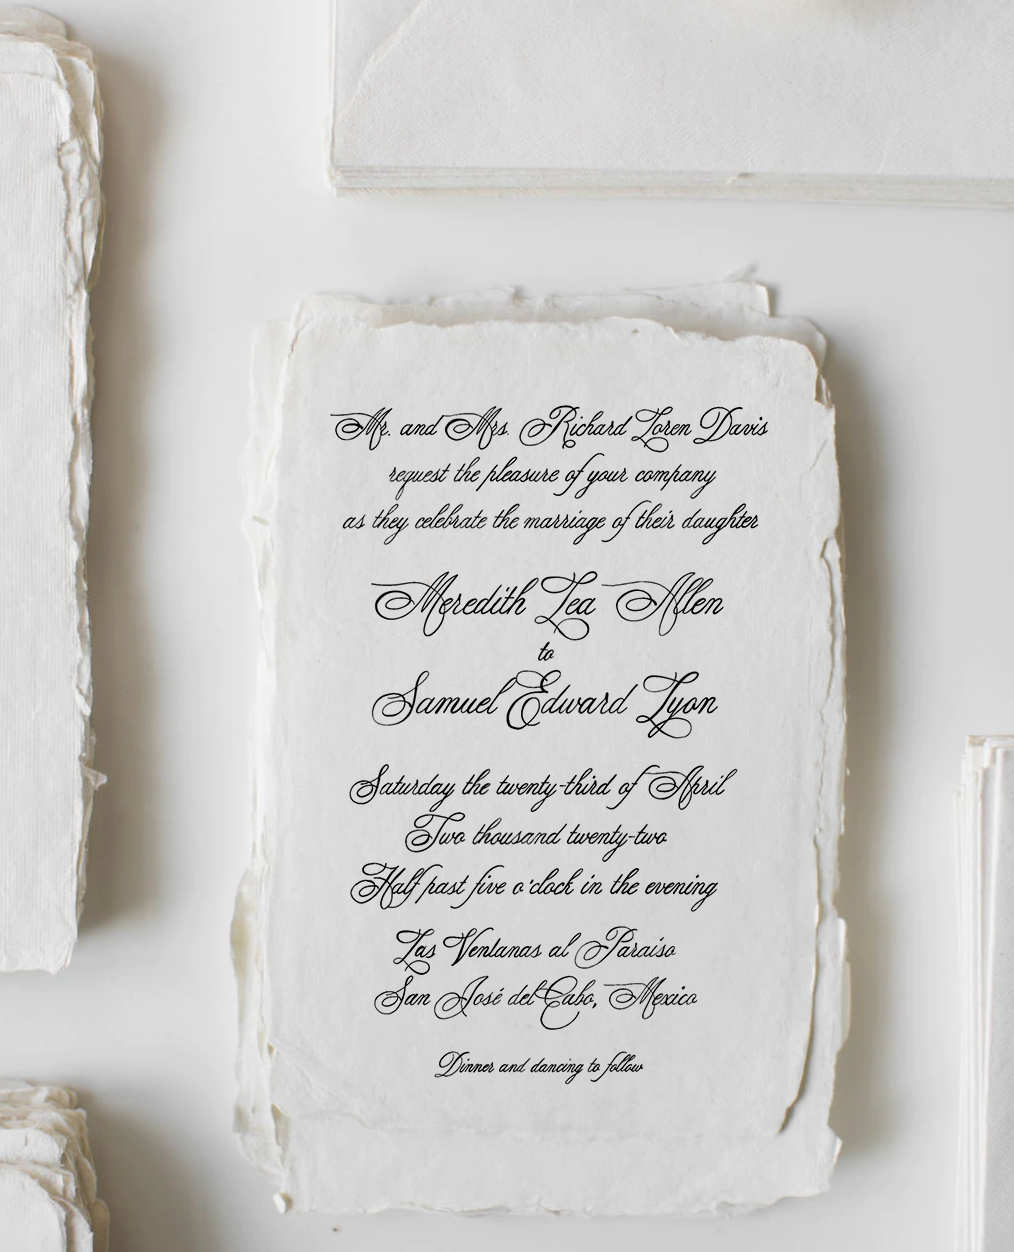 Mr. and Mrs. Richard Loren Davis
request the pleasure of your company
as they celebrate the marriage of their daughter
Meredith Lea Allen
to
Samuel Edward Lyon
Saturday the twenty-third of April
Two thousand twenty-two
Half past five o'clock in the evening
Las Ventanas al Paraiso
San José del Cabo, Mexico
Dinner and dancing to follow